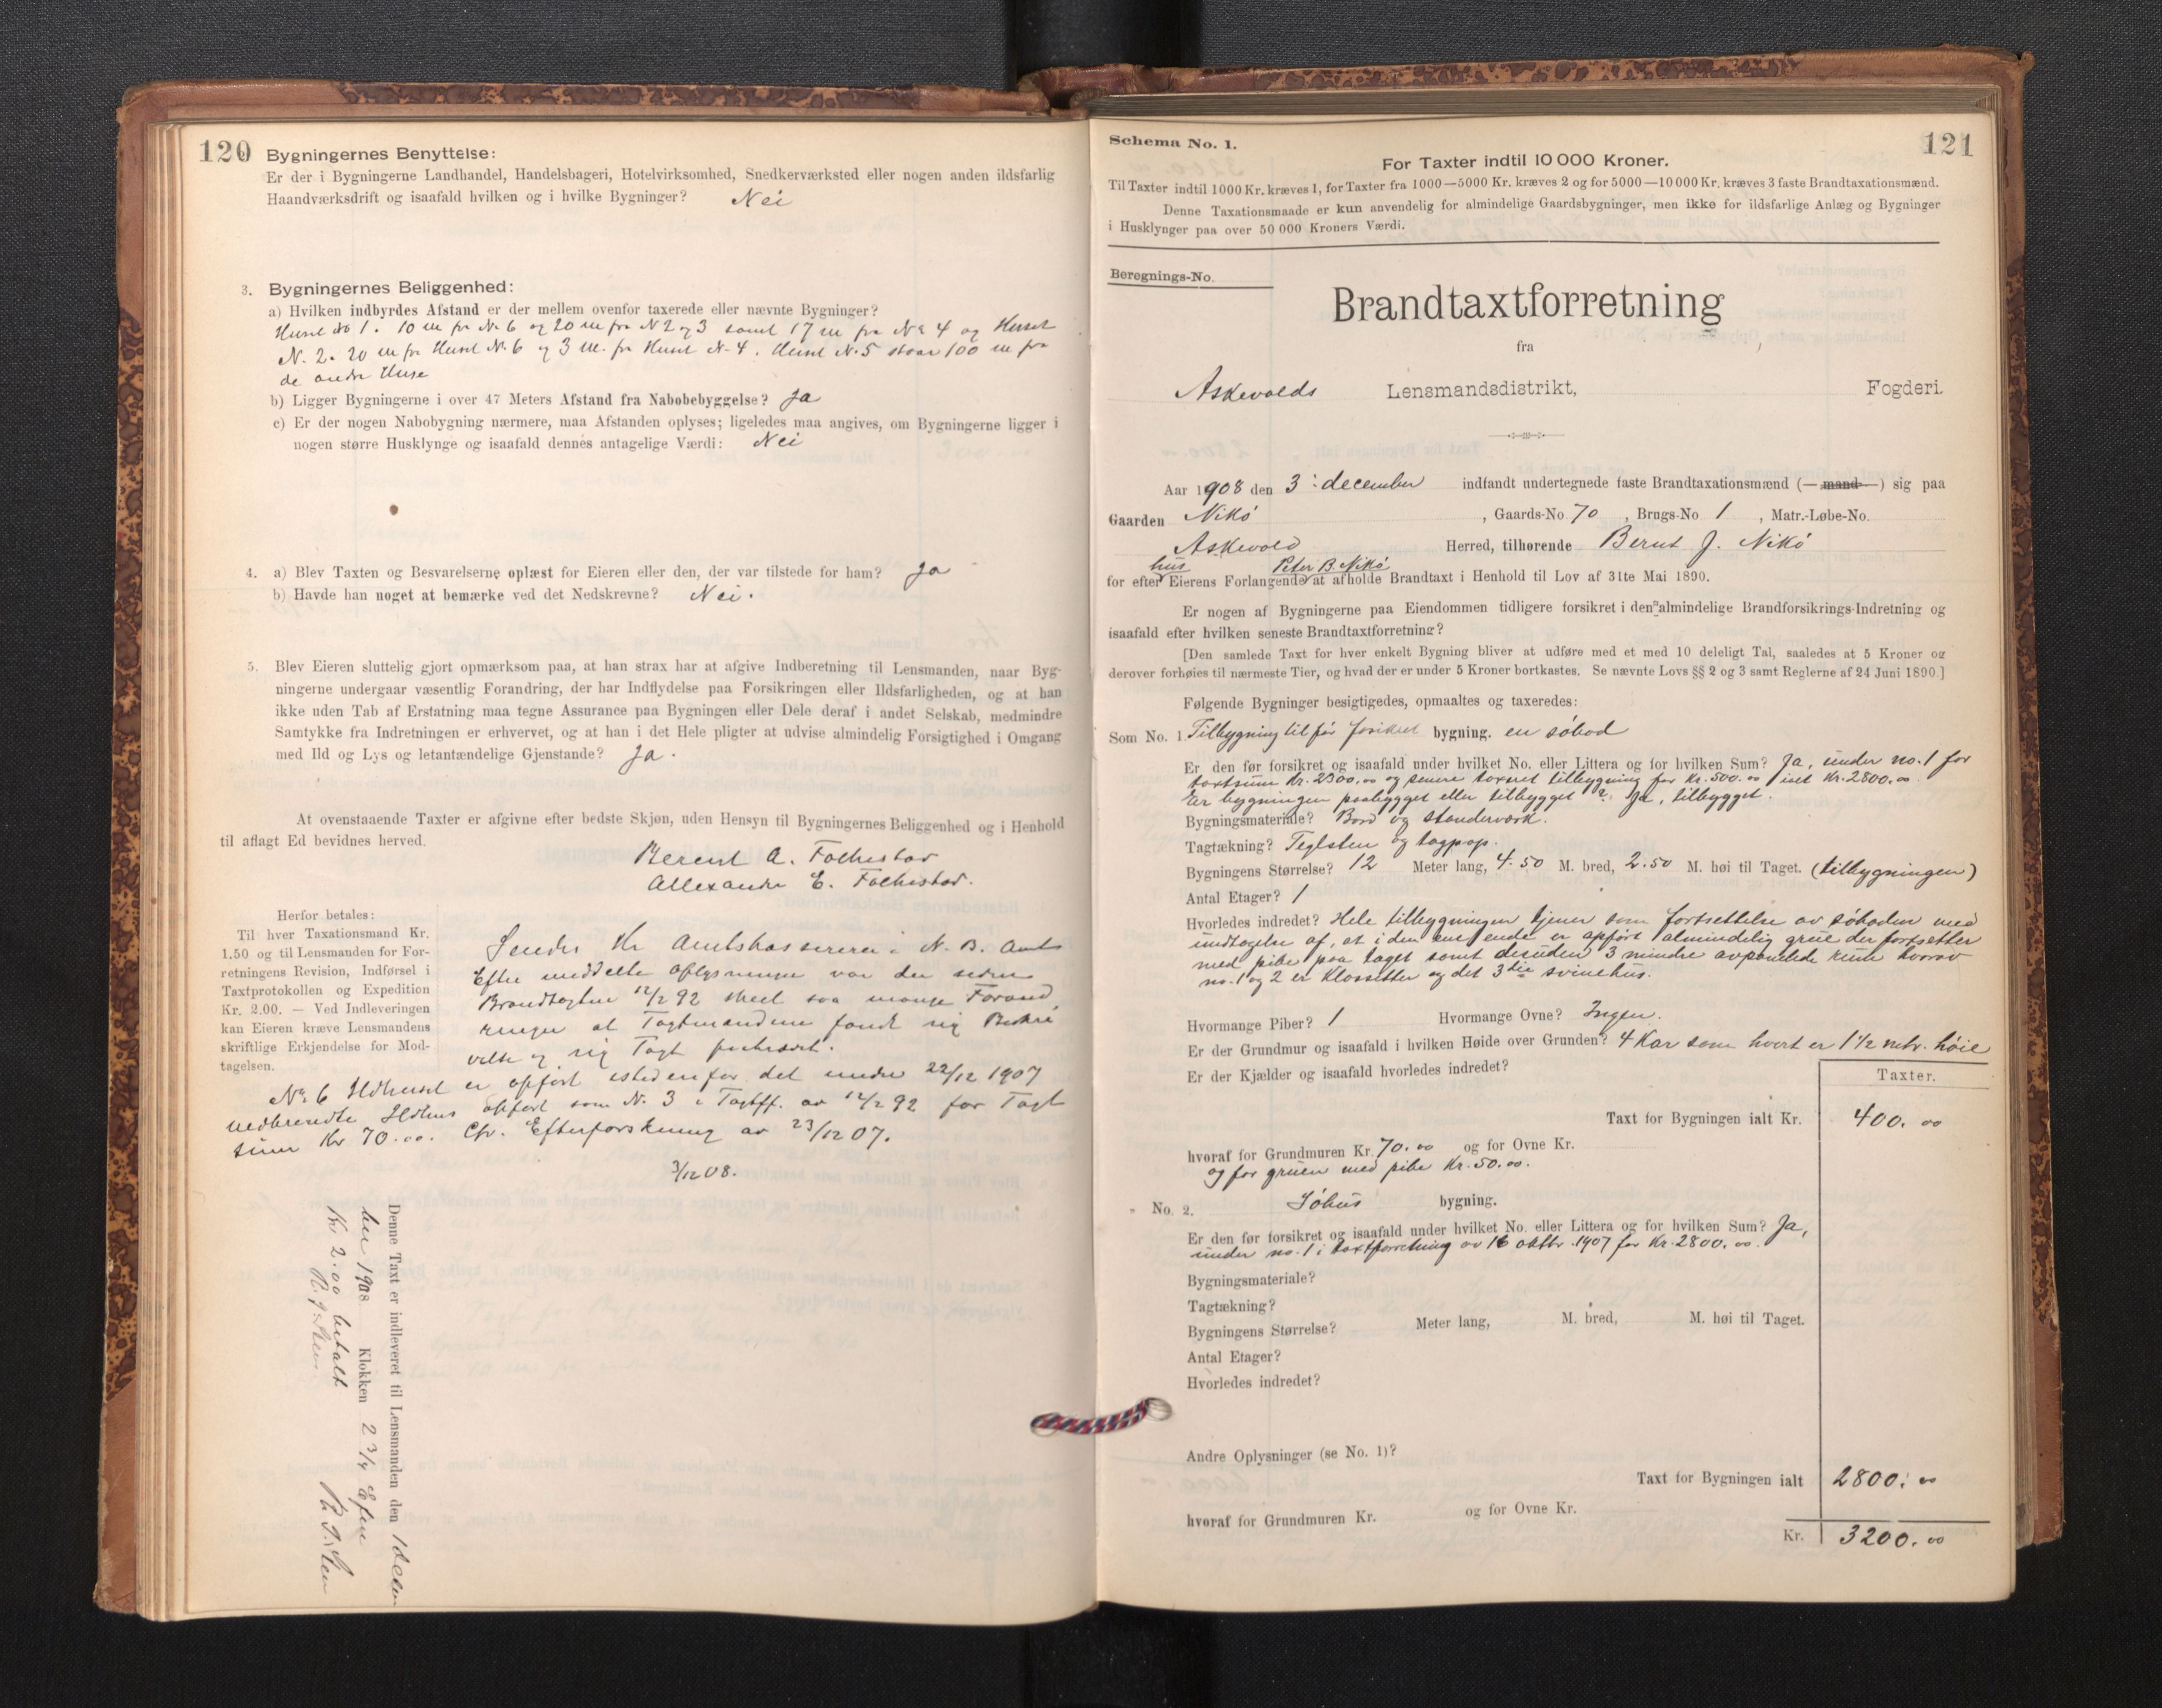 120
Bygningernes Benyttelse:
Er der i Bygningerne Landhandel, Handelsbageri, Hotelvirksomhed, Snedkerværksted eller nogen anden ildsfarlig
Haandværksdrift og isaafald hvilken og i hvilke Bygninger? Nei
3. Bygningernes Beliggenhed:
a) Hvilken indbyrdes Afstand er der mellem ovenfor taxerede eller nævnte Bygninger?
Huset No 1. 10 m fra No 6 og 20 m fra N 2 og 3 samt 17 m fra No 4 og Huset
N. 2. 20 m fra Huset N. 6 og 3 m. fra Huset N. 4. Huset N. 5 staar 100 m fra
de andre Huse
b) Ligger Bygningerne i over 47 Meters Afstand fra Nabobebyggelse? Ja
c) Er der nogen Nabobygning nærmere, maa Afstanden oplyses; ligeledes maa angives, om Bygningerne ligger i
nogen større Husklynge og isaafald dennes antagelige Værdi: Nei
4. a) Blev Taxten og Besvarelserne oplæst for Eieren eller den, der var tilstede for ham? Ja
b) Havde han noget at bemærke ved det Nedskrevne? Nei.
5. Blev Eieren sluttelig gjort opmærksom paa, at han strax har at afgive Indberetning til Lensmanden, naar Byg-
ningerne undergaar væsentlig Forandring, der har Indflydelse paa Forsikringen eller Ildsfarligheden, og at han
ikke uden Tab af Erstatning maa tegne Assurance paa Bygningen eller Dele deraf i andet Selskab, medmindre
Samtykke fra Indretningen er erhvervet, og at han i det Hele pligter at udvise almindelig Forsigtighed i Omgang
med Ild og Lys og letantændelige Gjenstande? Ja.
At ovenstaaende Taxter er afgivne efter bedste Skjøn, uden Hensyn til Bygningernes Beliggenhed og i Henhold
til aflagt Ed bevidnes herved.
Berent A. Folkestad
Allexander E. Folkestad.
Herfor betales:
Til hver Taxationsmand Kr.
1.50 og til Lensmanden for For-
retningens Revision, Indførsel i
Taxtprotokollen og Expedition
Kr. 2.00. — Ved Indleveringen
kan Eieren kræve Lensmandens
skriftlige Erkjendelse for Mod-
tagelsen.
Sendes Hr Amtskassereren i N. B. Amt
Efter meddelte Oplysninger var der siden
Brandtagten 12/2 92 skeet saa mange Forand
ringer at Tagtmændene fandt ny Beskri
velse og ny Tagt
No 6 Ildhuset er opført istedenfor det under 22/12 1907
nedbrendte Ildhus opført som N. 3 i Tagtff. av 12/2 92 for Tagt
sum Kr 70.00. Cfr. Efterforskning av 23/12 07.
3/12 08.
Denne Taxt er indleveret til Lensmanden den 1 decem
ber 1908 Klokken 2 3/4 Efm
Kr 2.00 betalt
121
Schema No. 1.
For Taxter indtil 10 000 Kroner.
Til Taxter indtil 1000 Kr. kræves 1, for Taxter fra 1000—5000 Kr. kræves 2 og for 5000—10 000 Kr. kræves 3 faste Brandtaxationsmænd.
Denne Taxationsmaade er kun anvendelig for almindelige Gaardsbygninger, men ikke for ildsfarlige Anlæg og Bygninger
i Husklynger paa over 50 000 Kroners Værdi.
Beregnings-No.
Brandtaxtforretning
fra
Askevolds Lensmandsdistrikt, Fogderi.
Aar 1908 den 3: december indfandt undertegnede faste Brandtaxationsmænd (—mand—) sig paa
Gaarden Nikö, Gaards-No. 70, Brugs-No 1, Matr.-Løbe-No.
Askevold Herred, tilhørende Bernt J. Nikö
hus Peter B. Nikö
for efter Eierens Forlangende at afholde Brandtaxt i Henhold til Lov af 31te Mai 1890.
Er nogen af Bygningerne paa Eiendommen tidligere forsikret i den almindelige Brandforsikrings-Indretning og
isaafald efter hvilken seneste Brandtaxtforretning?
[Den samlede Taxt for hver enkelt Bygning bliver at udføre med et med 10 deleligt Tal, saaledes at 5 Kroner og
derover forhøies til nærmeste Tier, og hvad der er under 5 Kroner bortkastes. Se nævnte Lovs §§ 2 og 3 samt Reglerne af 24 Juni 1890.]
Følgende Bygninger besigtigedes, opmaaltes og taxeredes:
Som No. 1. Tilbygning til før forsikret bygning. en söbod
Er den før forsikret og isaafald under hvilket No. eller Littera og for hvilken Sum? Ja, under no. 1 for
taxtsum Kr. 2300.00 og senere taxeret tilbygning for Kr. 500.00 ialt Kr. 2800.00
Er bygningen paabygget eller tilbygget? Ja, tilbygget.
Bygningsmateriale? Bord og standerverk.
Tagtækning? Teglsten og tagpap.
Bygningens Størrelse? 12 Meter lang, 4.50 M. bred, 2.50 M. høi til Taget. (tilbygningen)
Antal Etager? 1
Hvorledes indredet? Hele tilbygningen tjener som fortsettelse av söboden med
undtagelse af, at i den ene ende er opført almindelig grue der fortsetter
med pibe paa taget samt desuden 3 mindre avpanelede rum hvorav
no. 1 og 2 er klossetter og det 3die svinehus.
Hvormange Piber? 1 Hvormange Ovne? Ingen.
Er der Grundmur og isaafald i hvilken Høide over Grunden? 4 Kar som hvert er 1 1/2 mtr. höie
Er der Kjælder og isaafald hvorledes indredet?
Taxter.
Taxt for Bygningen ialt Kr. 400.00
hvoraf for Grundmuren Kr. 70.00 og for Ovne Kr.
og for gruen med pibe Kr. 50.00.
" No. 2. Söhus bygning.
Er den før forsikret og isaafald under hvilket No. eller Littera og for hvilken Sum? Ja,
under no. 1 i taxtforretning av 16 oktbr. 1907 for Kr. 2800.00.
Bygningsmateriale?
Tagtækning?
Bygningens Størrelse? Meter lang, M. bred, M. høi til Taget.
Antal Etager?
Hvorledes indredet?
Andre Oplysninger (se No. 1)?
Taxt for Bygningen ialt 2800.00
hvoraf for Grundmuren Kr. og for Ovne Kr.
Kr. 3200.00